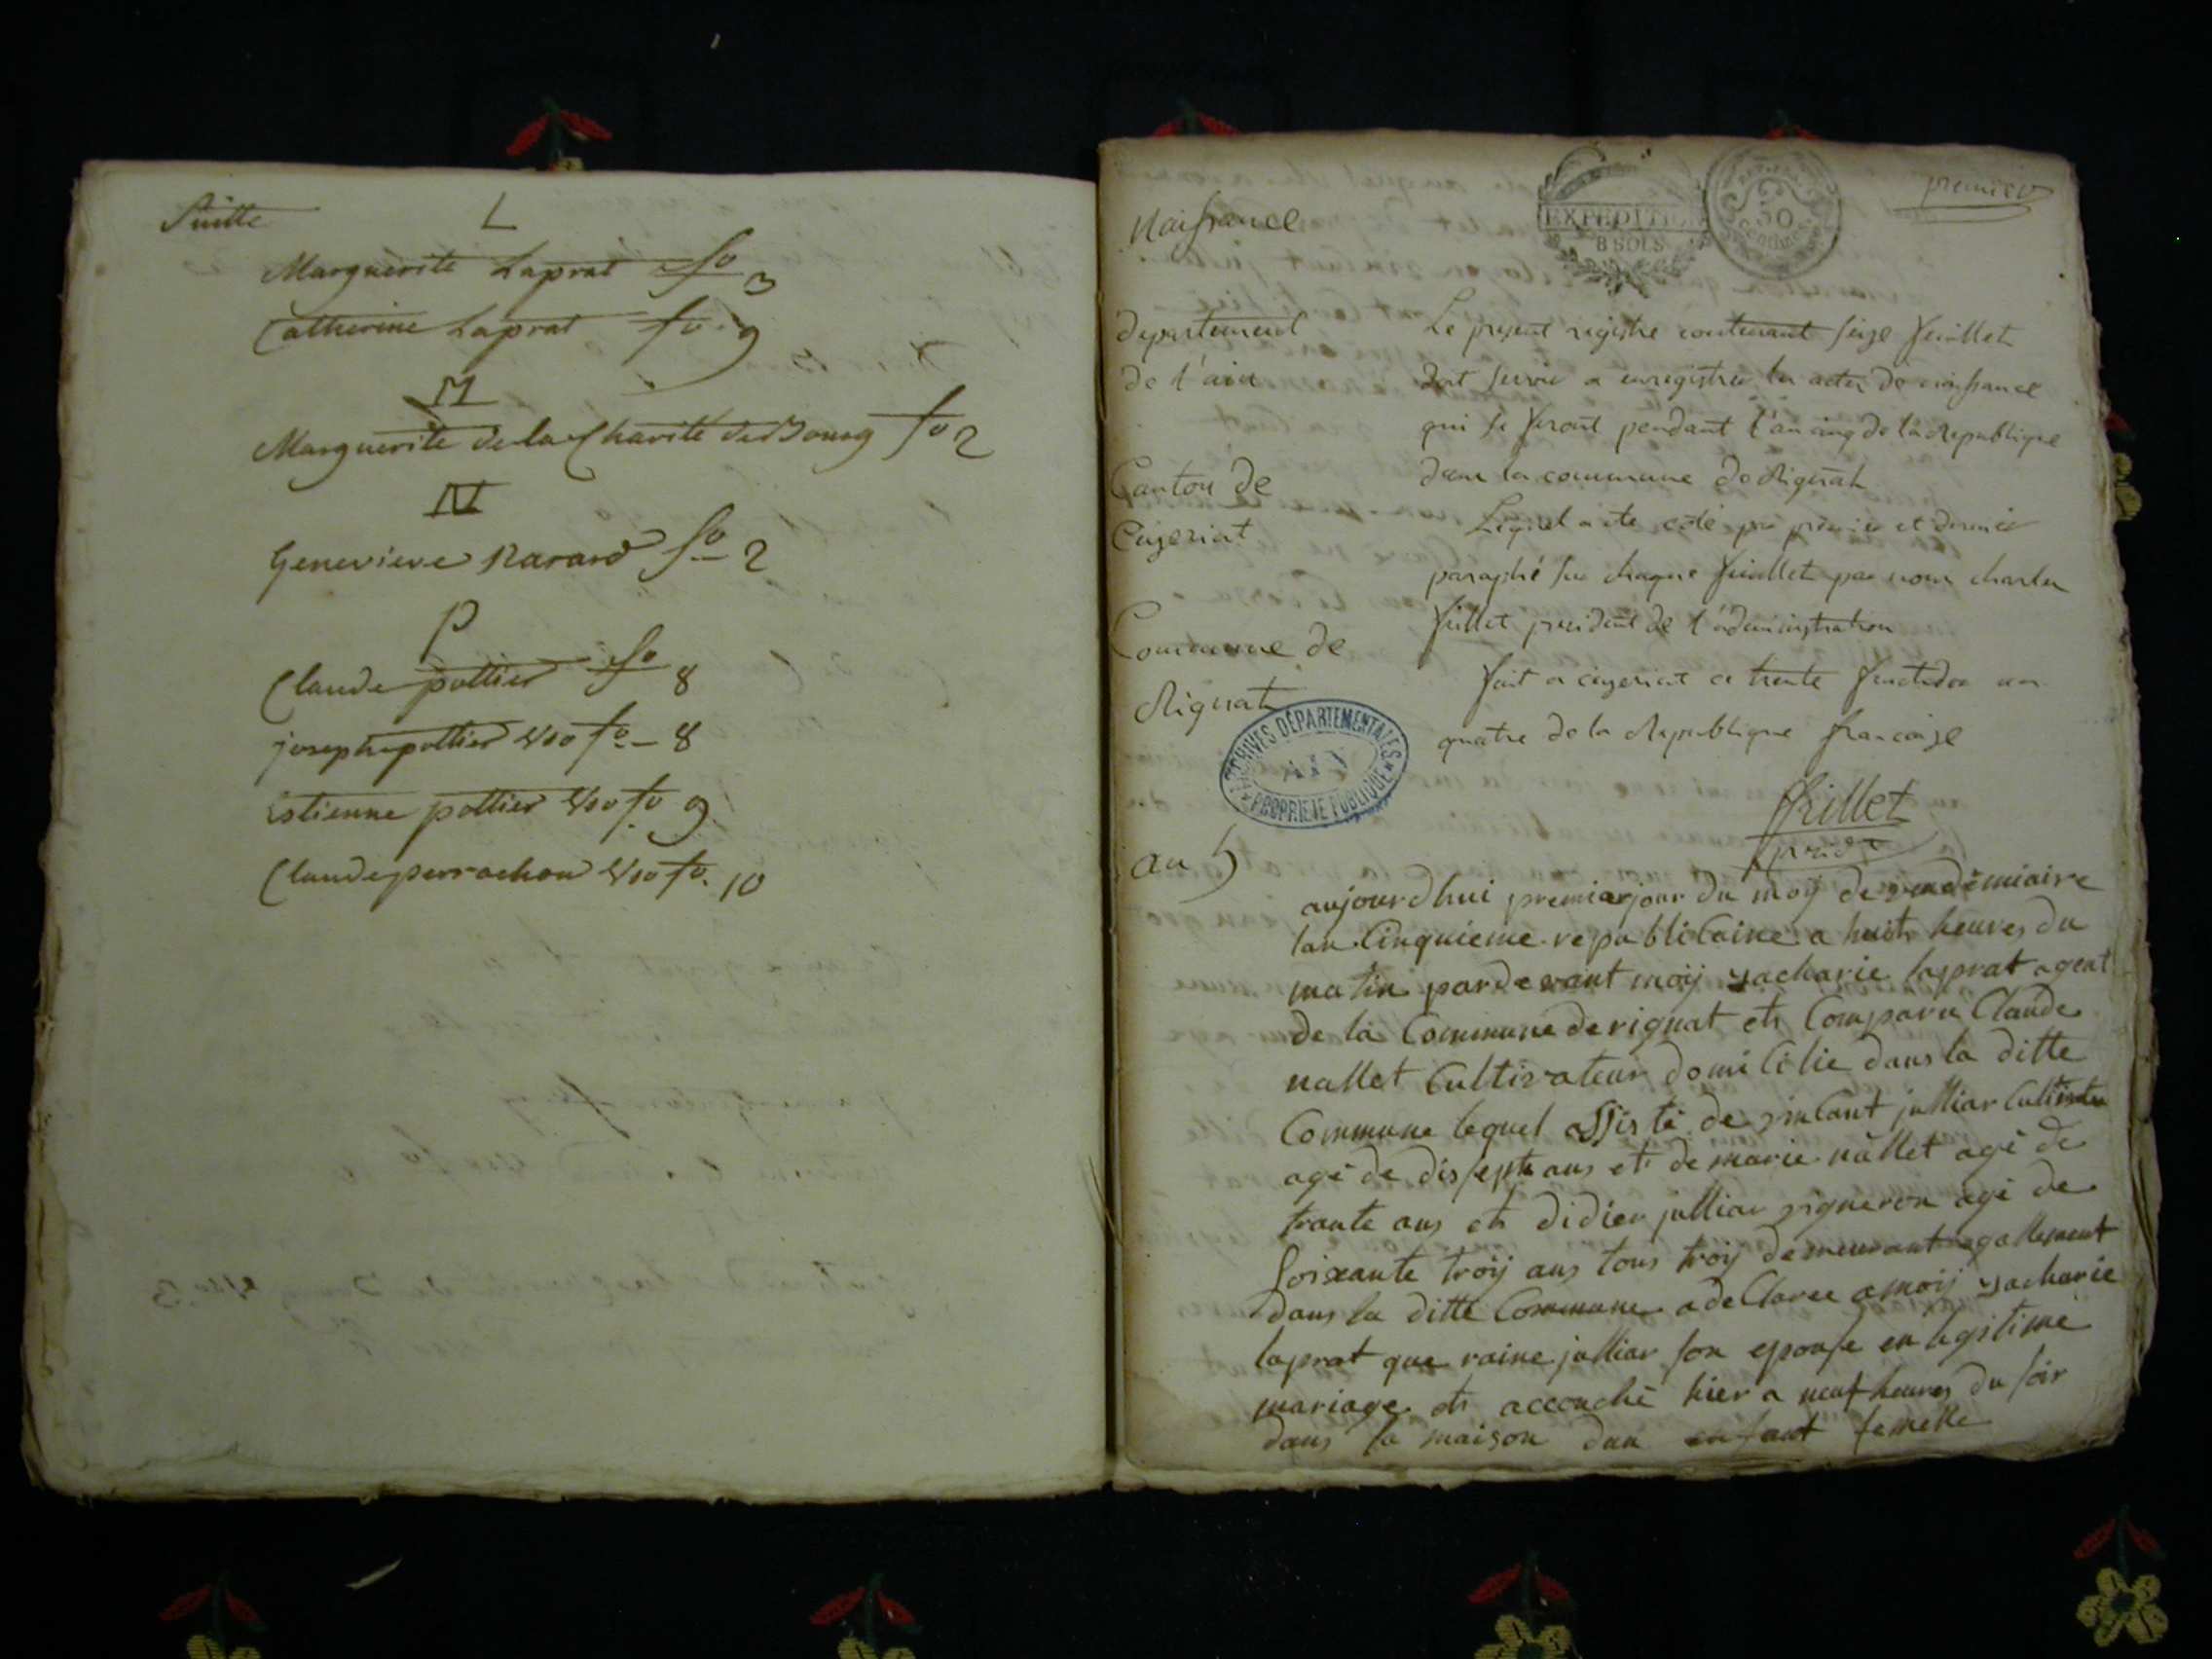 Suitte L
Marguerite Laprat fo 3
Catherine Laprat fo. 9
M
Marguerite de la Charité de Bourg fo 2
N
Genevieve Navard fo 2
P
Claude pottier fo 8
joseph pottier Vso fo - 8
estienne pottier Vso fo 9
Claude perrachon Vso fo. 10
premier
Naissance
EXPEDITION
8 SOLS
50
CENTIMES
departement
de l'ain
Canton de
Ceyzeriat
Commune de
Rignat
Le present registre contenant seize feuillet
doit servir a enregistrer les actes de naissance
qui se feront pendant l'an cinq de la Republique
dans la commune de Rignat
Lequel a ete coté par premier et dernier
paraphé sur chaque feuillet par nous charles
fillet president de l'administration
fait a ceyzeriat ce trente fructidor an
quatre de la Republique francaise
ARCHIVES DÉPARTEMENTALES
AIN
PROPRIÉTÉ PUBLIQUE
fillet
presidt
an 5
aujourdhui premier jour du moij de vendémiaire
lan Cinquieme republicaine a huit heures du
matin pardevant moij zacharie laprat agent
de la Commune de rignat et Comparu Claude
nallet Cultivateur domicilie dans la ditte
Commune lequel assisté de vincant julliar Cultivateur
agé de dissepte ans et de marie nallet agé de
trante ans et didier julliar vigneron agé de
soixante troij ans tous troij demeurant egallement
dans la ditte Commune a declaree a moij zacharie
laprat que raine julliar son epouse en legitime
mariage et accouché hier a neuf heures du soir
dans sa maison dun enfant femelle